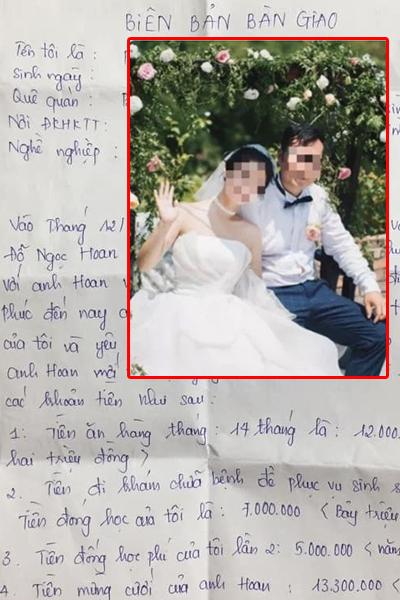 BIÊN BẢN BÀN GIAO
Tên tôi là :
sinh ngày :
Quê quán :
Nơi ĐKHKTT :
Nghề nghiệp :
Vào Tháng 12/
Đỗ Ngọc Hoan
với anh Hoan
phúc đến nay
của tôi và yêu
anh Hoan một
các khoản tiền như sau :
1: Tiền ăn hàng tháng : 14 tháng là : 12.000
hai triệu đồng >
2. Tiền đi khám chữa bệnh để phục vụ sinh s
Tiền đóng học của tôi là : 7.000.000 < bảy triệu
3. Tiền đóng học phí của tôi lần 2: 5.000.000 < năm
4. Tiền mừng cưới của anh Hoan : 13.300.000 <